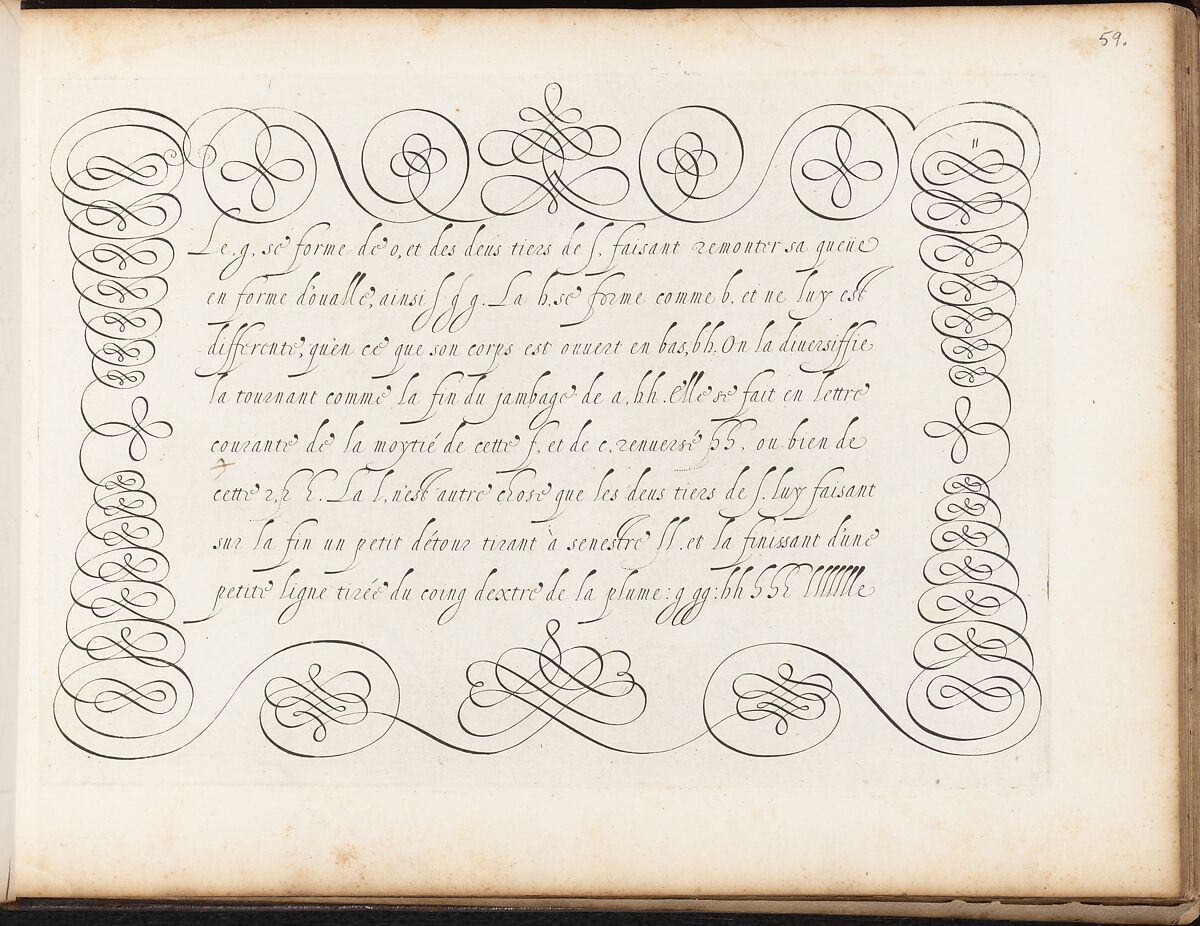 59.
11
Le, g, se forme de o, et des deus tiers de ſ, faisant remonter sa queüe
en forme d'oualle, ainsi ſ g g. La h, se forme comme b, et ne luy est
differente, qu'en ce que son corps est ouuert en bas, bh. On la diuersiffie
la tournant comme la fin du jambage de a, hh. Elle se fait en lettre
courante de la moytié de cette ſ, et de c, renuersé hh, ou bien de
cette 2, 2 h. La l, n'est autre chose que les deus tiers de ſ. luy faisant
sur la fin un petit détour tirant à senestre ſl. et la finissant d'une
petite ligne tirée du coing dextre de la plume: g gg: hh hhh lllllle